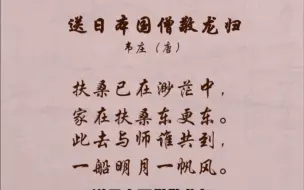 送日本国僧敬龙归
韦庄（唐）
扶桑已在渺茫中，
家在扶桑东更东。
此去与师谁共到，
一船明月一帆风。